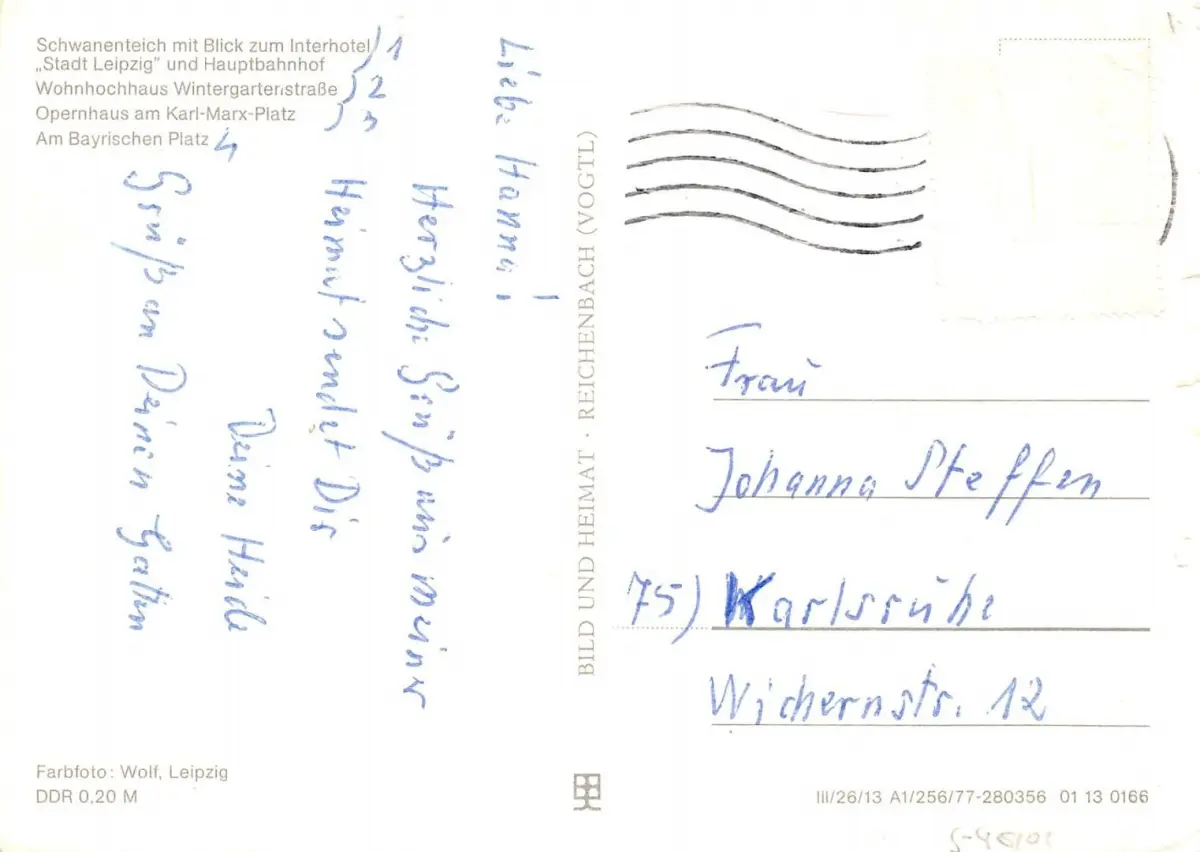 Schwanenteich mit Blick zum Interhotel ) 1
„Stadt Leipzig" und Hauptbahnhof
Wohnhochhaus Wintergartenstraße ) 2
Opernhaus am Karl-Marx-Platz ) 3
Am Bayrischen Platz 4
Liebe Hanna!
Herzliche Grüße aus meiner
Heimat sendet Dir
Deine Heide
Grüße an Deinen Gatten
BILD UND HEIMAT · REICHENBACH (VOGTL)
Frau
Johanna Steffen
75) Karlsruhe
Wichernstr. 12
Farbfoto: Wolf, Leipzig
DDR 0,20 M
III/26/13 A1/256/77-280356 01 13 0166